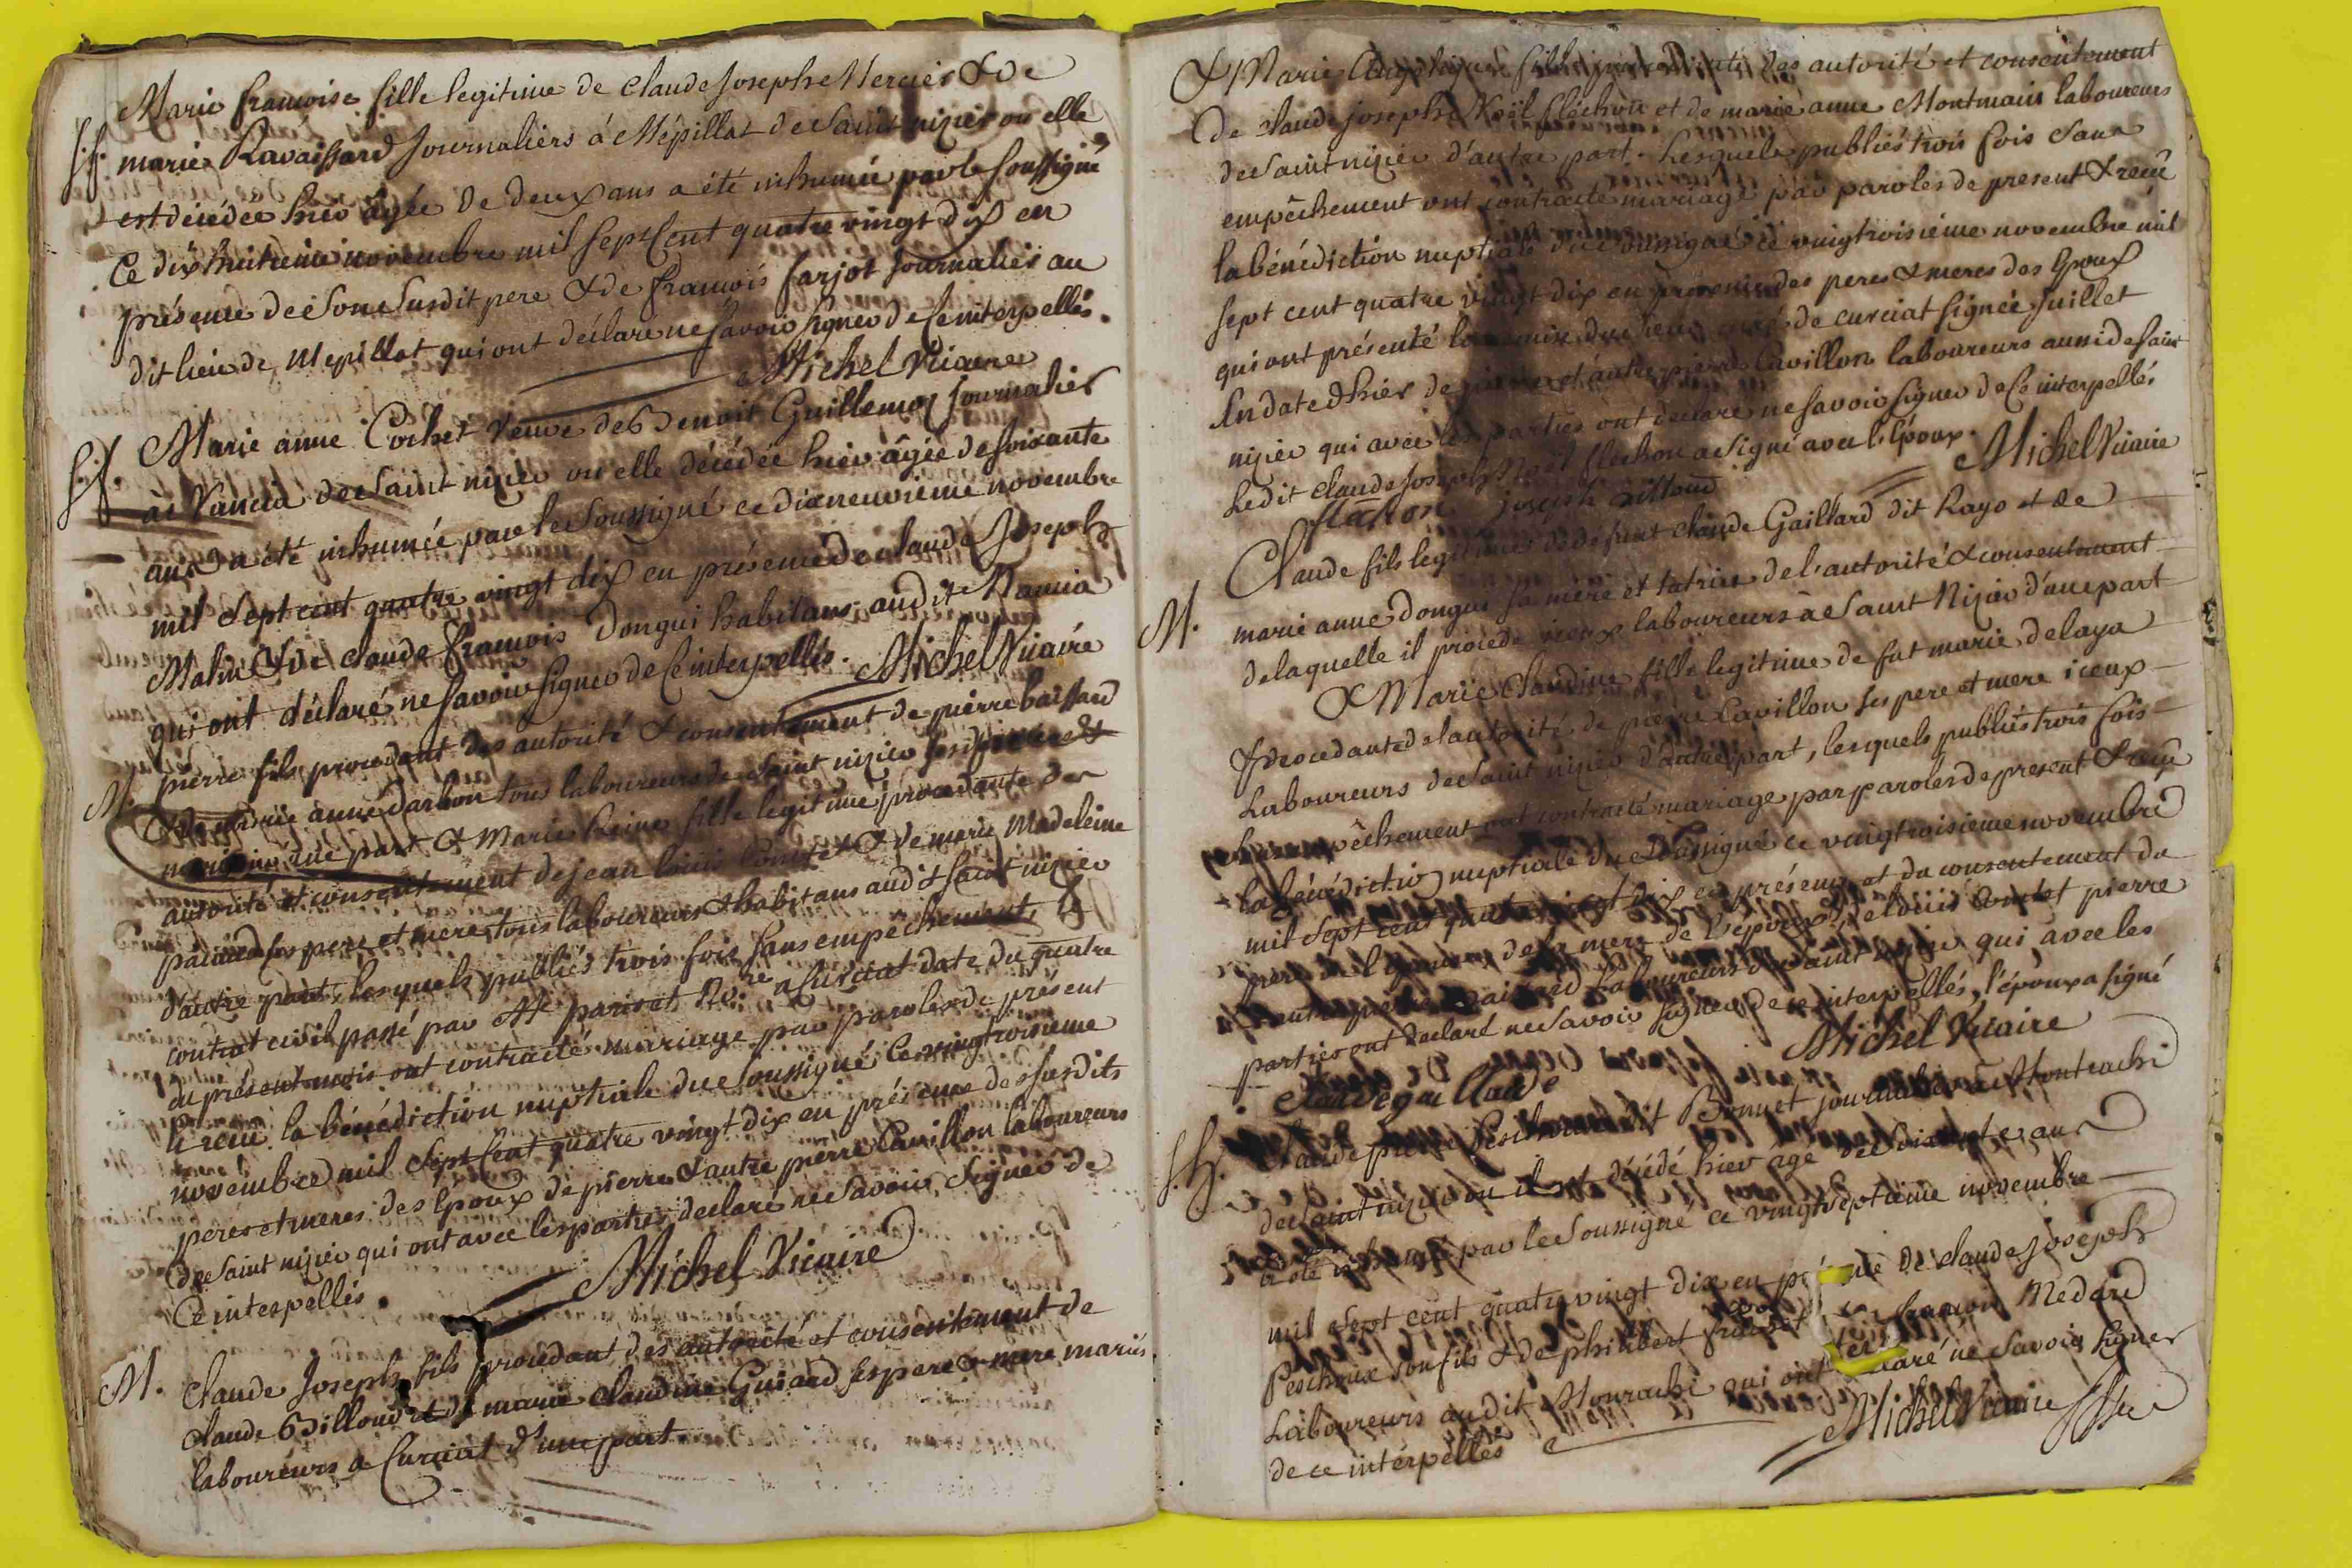 Marie francoise fille legitime de Claude Joseph Mercier & de
S.f. marie Ravaissard Journaliers á Mépillat de Saint nizier ou elle
est décédée hier âgée de deux ans a été inhumée par le soussigné
Ce dix huitieme novembre mil sept Cent quatre vingt dix en
présence de son susdit pere & de francois farjot Journalier au
dit lieu de Mepillat qui ont déclaré ne savoir signer de Ce interpellés.
Michel Vicaire
S.f. Marie anne Cochet veuve de Benoit Guillemoz Journalier
à Vancia de Saint nizier ou elle décédée hier âgée de soixante
ans a été inhumée par le soussigné ce dixneuvieme novembre
mil sept cent quatre vingt dix en présence de claude Joseph
Malin & de claude francois Dongui habitans audit Vancia
qui ont déclaré ne savoir signer de Ce interpellés. Michel Vicaire
M. pierre fils procedant des autorité & consentement de pierre baissard
& de marie anne darbon tous laboureurs de saint nizier ses pere &
d'une part & Marie Reine fille legitime procedante des
autorité et consentement de jean louis Comtet & de marie Madeleine
ses pere et mere tous laboureurs & habitans audit saint nizier
d'autre part, lesquels publiés trois fois sans empechement,
contrat civil passé par Me pariset Nore a Curciat date du quatre
du présent mois ont contracté mariage par paroles de présent
& recu la bénédiction nuptiale du soussigné Ce vingt troisieme
novembre mil sept Cent quatre vingt dix en présence des susdits
peres et meres des Epoux de pierre & autre pierre Cavillon laboureurs
de Saint nizier qui ont avec les parties declaré ne savoir signer de
Ce interpellés.
Michel Vicaire
M. Claude Joseph fils procedant des autorité et consentement de
claude Billoud et de marie claudine Guiard ses pere & mere mariés
laboureurs a Curciat d'une part
& Marie fille des autorité et consentement
De claude joseph Noël flêchon et de marie anne Montmain laboureurs
de saint nizier d'autre part. Lesquels publiés trois fois sans
empêchement ont contracté mariage par paroles de present & recu
la bénédiction nuptiale du soussigné ce vingt troisieme novembre mil
sept cent quatre vingt dix en présence des peres & meres des Epoux
qui ont présenté la remise du sieur curé de curciat signée Juillet
En date d'hier de pierre et autre pierre Cavillon laboureurs aussi de saint
nizier qui avec les parties ont declaré ne savoir signer de Ce interpellés
Ledit Claude Joseph Noël flechon a signé avec l'Epoux. Michel Vicaire
flechon joseph billoud
Claude fils legitime de defunt Claude Gaillard dit Rayo et de
M. marie anne Dongui sa mere et tutrice de l'autorité & consentement
de laquelle il procede iceux laboureurs à Saint Nizier d'une part
& Marie Claudine fille legitime de fut marie delaya
& procedante de l'autorité de pierre Cavillon ses pere et mere iceux
Laboureurs de saint nizier d'autre part, lesquels publiés trois fois
sans empêchement ont contracté mariage par paroles de present & recu
la bénédiction nuptiale du soussigné ce vingt troisieme novembre
mil sept cent quatre vingt dix en présence et du consentement du
pere de l'epouse de la mere de l'epoux, et pierre
& autre pierre baissard laboureurs de saint nizier qui avec les
parties ont declaré ne savoir signer de ce interpellés, l'époux a signé
Michel Vicaire
Claude gaillard
S.f. Claude pierre Peschoux dit Bonnet journalier à Montrachi
de saint nizier ou il est décédé hier agé de soixante ans
a été inhumé par le soussigné ce vingt septieme novembre
mil sept cent quatre vingt dix en présence de claude joseph
Peschoux son fils & de philibert francois Medard
Laboureurs audit Mourachi qui ont declaré ne savoir signer
de ce intérpellés Michel Vicaire